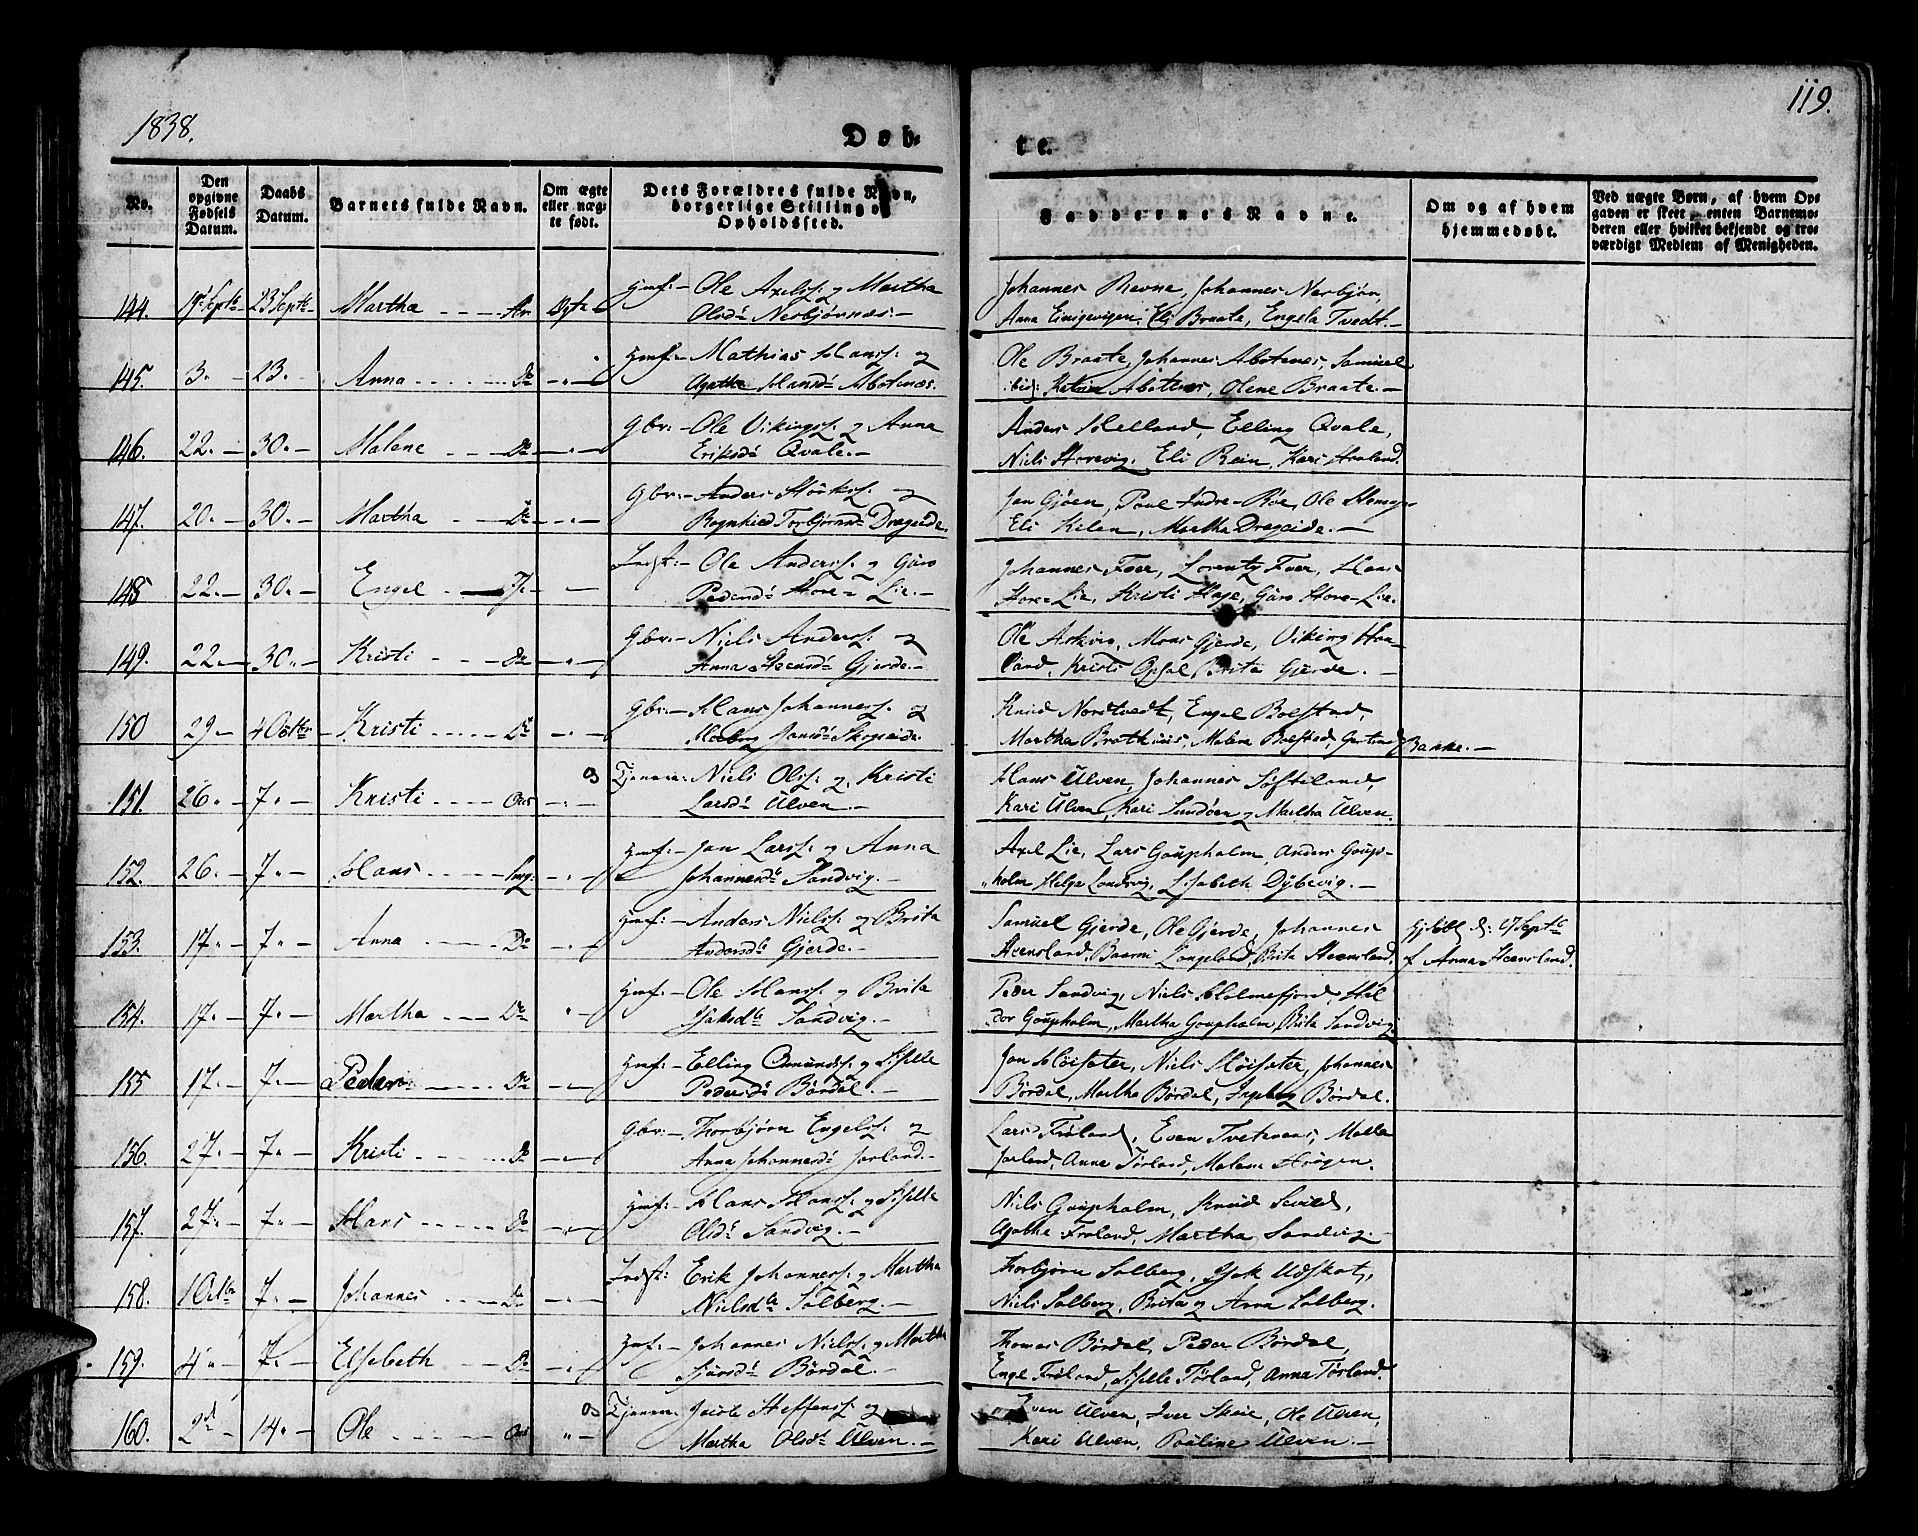 1838.
119.
Døb-
te.
No.
Den opgivne Fødsels Datum.
Daabs Datum.
Barnets fulde Navn.
Om ægte eller uægte født.
Dets Forældres fulde Navn, borgerlige Stilling og Opholdssted.
Faddernes Navne.
Om og af hvem hjemmedøbt.
Ved uægte Børn, af hvem Opgaven er skeet, enten Barnemoderen eller hvilket bekjendt og troværdigt Medlem af Menigheden.
144. 19 Septb 23 Septb Martha Ægte Hmf: Ole Axels: og Martha
Olsd: Nesbjørnæs.
Johannes Revne, Johannes Nesbjør,
Anna Einigevigen, Eli Braate, Engela Tvedt.
145. 3. 23. Anna Do Hmf: Mathias Hans: og
Agathe Hansd: Abotnæs.
Ole Braate, Johannes Abotnes, Samuel
ibid: Abotnes, Olene Braate.
146. 22. 30. Malene Do Gbr: Ole Vikings: og Anna
Eriksd: Qvale.
Anders Helland, Elling Qvale,
Niels Storevig, Eli Rein, Kari Haaland.
147. 20. 30. Martha Do Gbr: Anders Størks: og
Ragnhild Torbjørnsd: Drageide.
Jan Gjøen, Povl Indre-Bøe, Ole
Eli Kilen, Martha Drageide.
148 22. 30. Engel Indst: Ole Anders: og Gøro
Pedersd: Store-Lie.
Johannes Foer, Lorentz Foer, Hans
Store-Lie, Kristi Hage, Gøro Store-Lie.
149. 22. 30. Kristi Do Gbr: Niels Anders: og
Anna Steensd: Gjerde.
Ole Askvig, Mons Gjerde, Viking Haa-
land, Kristi Opsal, Brita Gjerde.
150 29 4 Octbr Kristi Do Gbr: Hans Johanness: og
Jansd: Skogseide.
Knud Nordtvedt, Engel Bolstad,
Martha Brathuus, Malene Bolstad, Gertrud Bakke.
151. 26. 7. Kristi Oos Tjenere: Niels Ols: og Kristi
Larsd: Ulven.
Hans Ulven, Johannes Søfteland,
Kari Ulven, Kari Sundøen og Martha Ulven.
152. 26. 7. Hans Hmf: Jan Lars: og Anna
Johannesd: Sandvig.
Axel Lie, Lars Goupholm, Anders Goup-
holm Helga Londvig, Lisabeth Dybevig.
153. 17. 7. Anna Do Hmf: Anders Niels: og Brita
Andersd: Gjerde.
Samuel Gjerde, Ole Gjerde, Johannes
Steensland, Langeland, Brita Steensland.
Hj: døbt d: 17 Septb
f Anna Steensland.
154. 17. 7. Martha Do Hmf: Ole Hans: og Brita
Isaksd: Sandvig.
Peder Sandvig, Niels Holmefjord, Hal
dor Goupholm, Martha Goupholm, Brita Sandvig.
155 17. 7. Peder Do Hmf: Elling Omunds: og Sisille
Pedersd: Børdal.
Jon Møisæter, Niels Møisæter, Johannes
Børdal, Martha Børdal, Ingeborg Børdal.
156. 27. 7. Kristi Do Gbr: Thorbjørn Engels: og
Anna Johannesd: Jarland.
Lars Frøland, Even Tvetenæs, Malla
Jarland, Anne Tørland, Malene
157. 27. 7. Hans Do Hmf: Hans Hans: og Sisille
Olsd: Sandvig.
Niels Goupholm, Knud Sevild,
Agathe Frøland, Martha Sandvig.
158. 1 Octbr 7. Johannes Do Indst: Erik Johanness: og Martha
Nielsd: Solberg.
Thorbjørn Solberg, Isak Udskot,
Niels Solberg, Brita og Anna Solberg.
159. 4. 7. Elsebeth Do Hmf: Johannes Niels: og Martha
Sjursd: Børdal.
Thomas Børdal, Peder Børdal,
Engel Frøland, Sisille Tørland, Anna Tørland.
160. 2d 14. Ole Oos Tjenere: Jacob Steffens: og
Martha Olsd: Ulven.
Even Ulven, Iver Skeie, Ole Ulven,
Kari Ulven, Pauline Ulven.